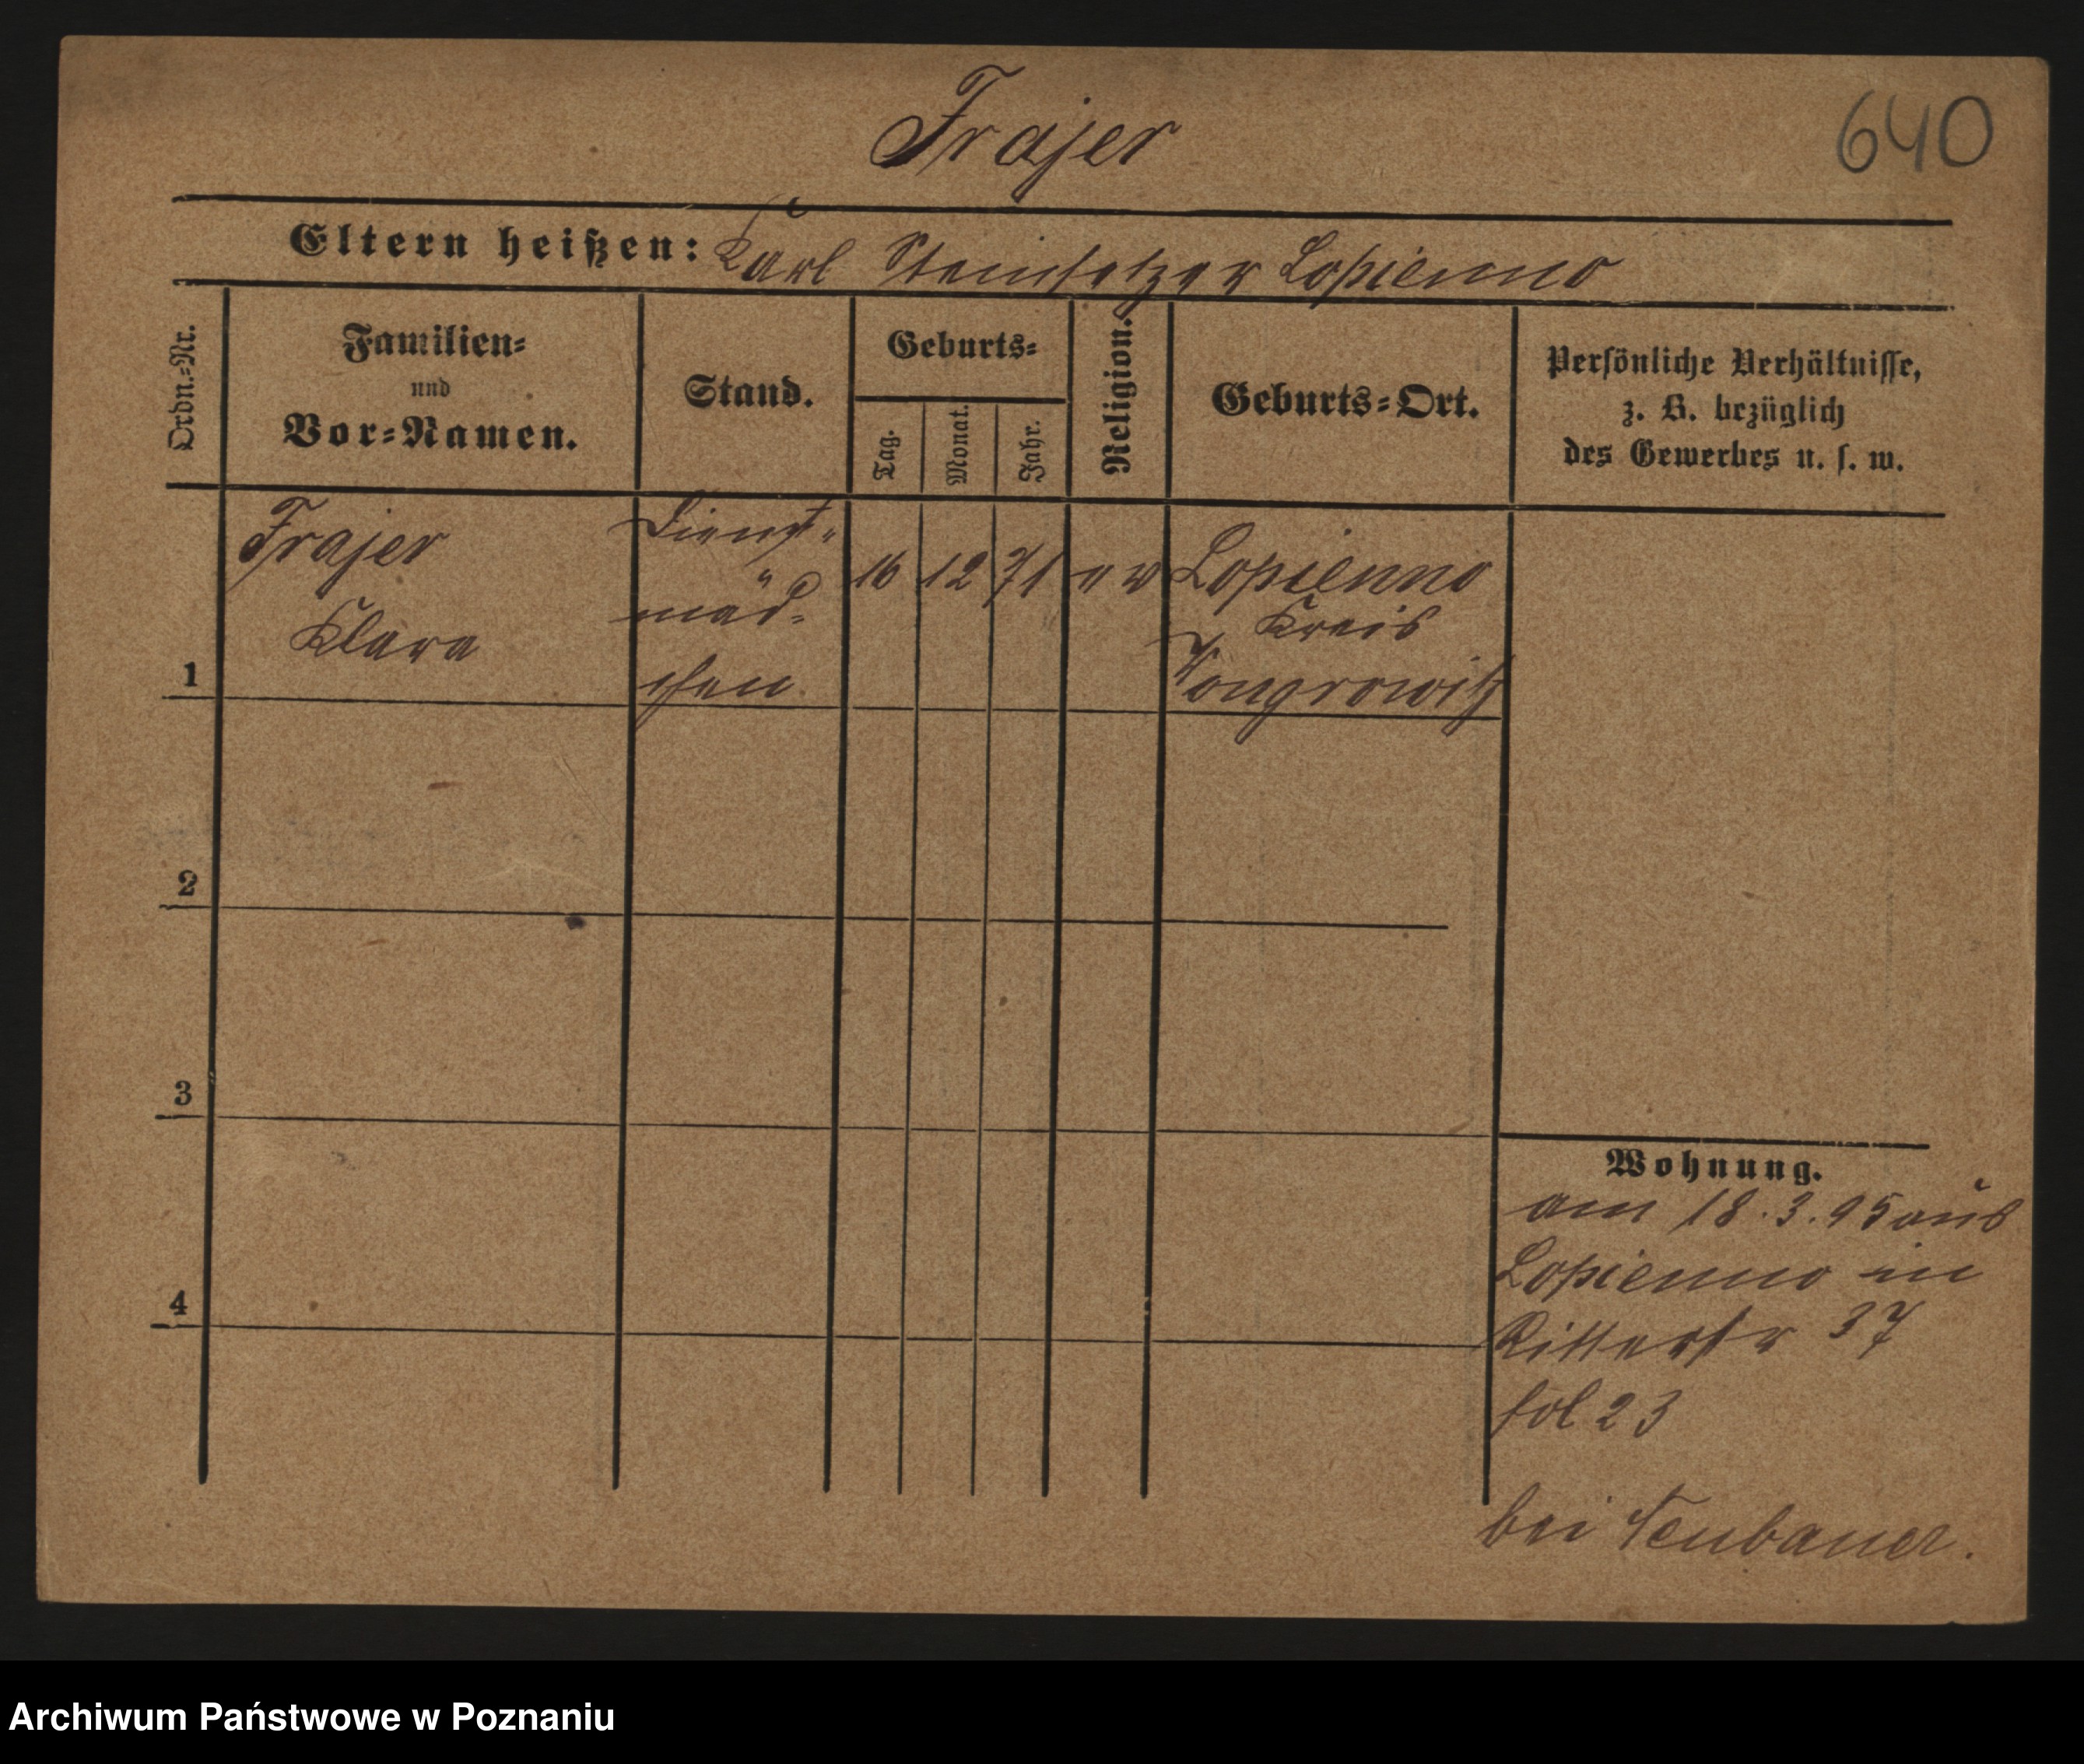 Frajer
640
Eltern heißen: Karl Steinsetzer Lopienno
Ordn.-Nr.
Familien-
und
Vor-Namen.
Stand.
Geburts-
Tag.
Monat.
Jahr.
Religion.
Geburts-Ort.
Persönliche Verhältnisse,
z. B. bezüglich
des Gewerbes u. s. w.
1
Frajer
Klara
Dienst-
mäd-
chen
16 12 71 ev
Lopienno
Kreis
Wongrowitz
2
3
4
Wohnung.
am 18.3.95 aus
Lopienno in
Ritterstr 37
fol 23
bei Neubauer.
Archiwum Państwowe w Poznaniu